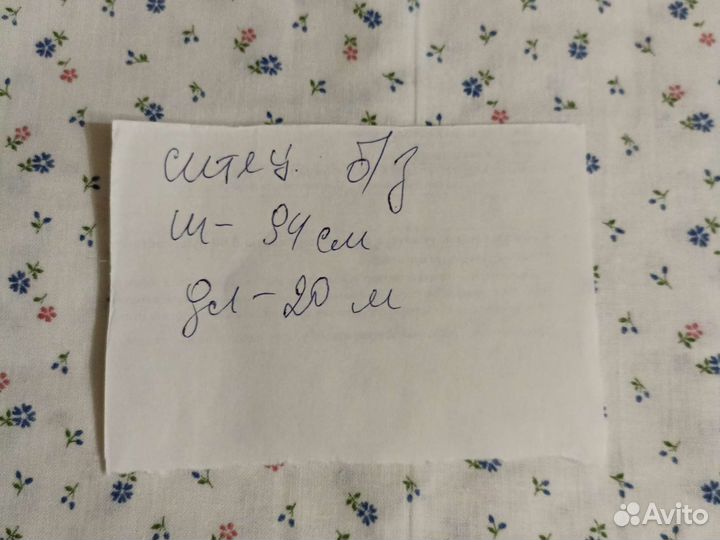 ситец. б/з
ш- 94 см
дл-20 м
Avito